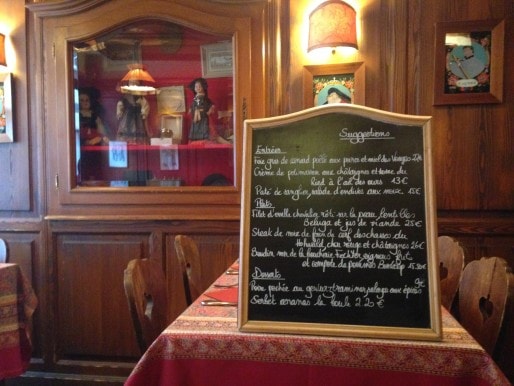 Suggestions
Entrées
Foie gras de canard poêlé aux poires et miel des Vosges
Crème de potimarron aux châtaignes et tome du
Ried à l'ail des ours 13€
Pâté de sanglier, salade d'endives aux noix 15€
Plats
Filet d'omble chevalier rôti sur la peau, lentilles
Beluga et jus de viande 25€
Steak de noix de filet de cerf, des chasses du
Hohwald, chou rouge et châtaignes 26€
Boudin noir de la boucherie oignons
et compote de pommes 15.50€
Desserts
9€
Poire pochée au gewurztraminer, aux épices
Sorbet ananas la boule 2.20€